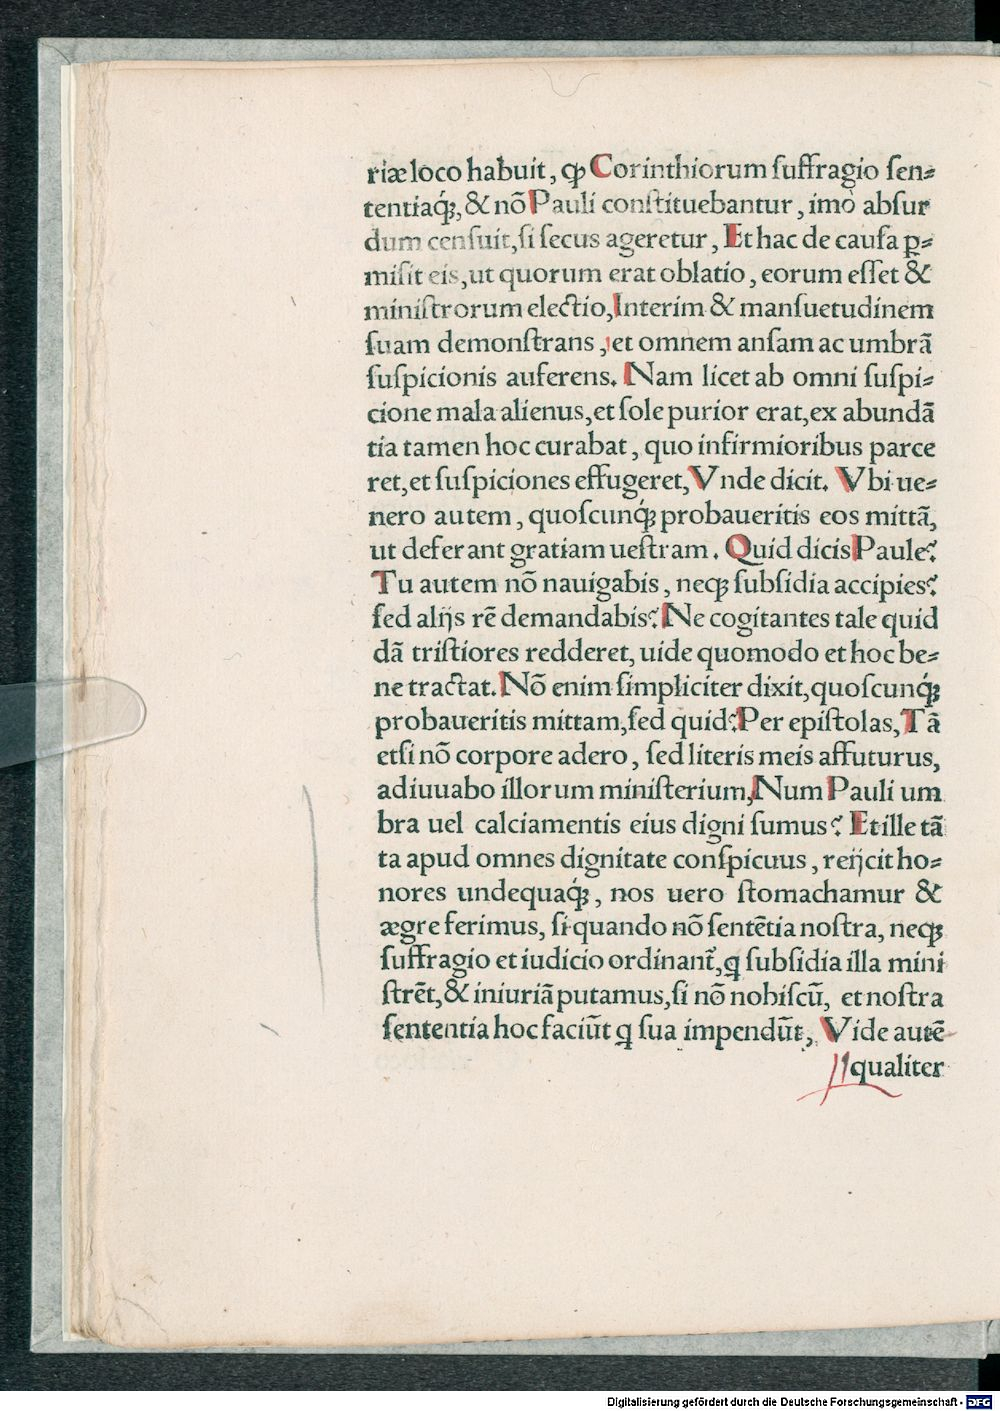 riæ loco habuit, ꝙ Corinthiorum ſuffragio ſen⸗
tentiaq́ꝫ, & nõ Pauli conſtituebantur, imò abſur
dum cenſuit, ſi ſecus ageretur, Et hac de cauſa ꝑ⸗
miſit eis, ut quorum erat oblatio, eorum eſſet &
miniſtrorum electio, Interim & manſuetudinem
ſuam demonſtrans, et omnem anſam ac umbrã
ſuſpicionis auferens. Nam licet ab omni ſuſpi⸗
cione mala alienus, et ſole purior erat, ex abundã
tia tamen hoc curabat, quo infirmioribus parce
ret, et ſuſpiciones effugeret, Vnde dicit. Vbi ue⸗
nero autem, quoſcunq́ꝫ probaueritis eos mittã,
ut deferant gratiam ueſtram. Quid dicis Paule?
Tu autem nõ nauigabis, neqꝫ ſubſidia accipies?
ſed alijs rẽ demandabis? Ne cogitantes tale quid
dã triſtiores redderet, uide quomodo et hoc be⸗
ne tractat. Nõ enim ſimpliciter dixit, quoſcunq́ꝫ
probaueritis mittam, ſed quid? Per epiſtolas, Tã
etſi nõ corpore adero, ſed literis meis affuturus,
adiuuabo illorum miniſterium, Num Pauli um
bra uel calciamentis eius digni ſumus? Et ille tã
ta apud omnes dignitate conſpicuus, reijcit ho⸗
nores undequaq́ꝫ, nos uero ſtomachamur &
ægre ferimus, ſi quando nõ ſentẽtia noſtra, neqꝫ
ſuffragio et iudicio ordinant᷑, ꝗ ſubſidia illa mini
ſtrẽt, & iniuriã putamus, ſi nõ nobiſcũ, et noſtra
ſententia hoc faciũt ꝗ ſua impendũt, Vide autẽ
qualiter
Digitalisierung gefördert durch die Deutsche Forschungsgemeinschaft - DFG